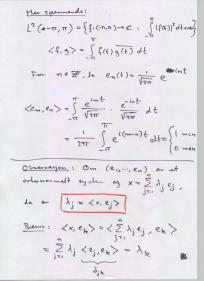 Mer spennende:
L²(-π,π) = { f: (-π,π) → ℂ : ∫_{-π}^{π} |f(t)|² dt < ∞ }
<f, g> = ∫_{-π}^{π} f(t) \overline{g(t)} dt
For n ∈ ℤ, la e_n(t) = 1/√2π e^{int}
<e_m, e_n> = ∫_{-π}^{π} e^{imt}/√2π · e^{-int}/√2π dt
= 1/2π ∫_{-π}^{π} e^{i(m-n)t} dt = { 1 m=n
0 m≠n
Observasjon: Om (e_1, ..., e_n) er et
ortonormalt system og x = ∑_{j=1}^{n} λ_j e_j,
da er λ_j = <x, e_j>
Bevis: <x, e_k> = <∑_{j=1}^{n} λ_j e_j, e_k>
= ∑_{j=1}^{n} λ_j <e_j, e_k> = λ_k
δ_{jk}